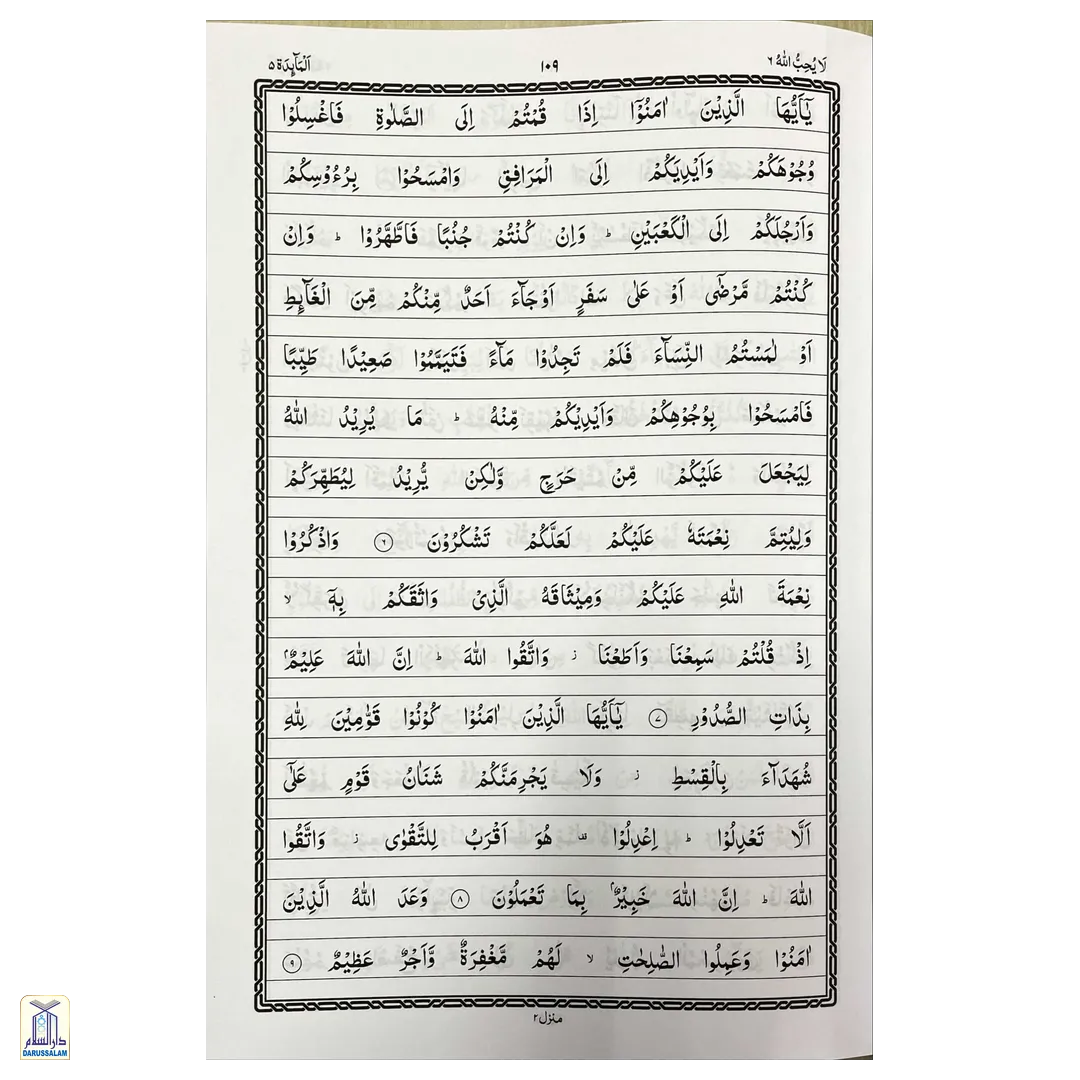 لَا يُحِبُّ اللّٰهُ ٦ ١٠٩ اَلْمَآئِدَة ٥
يٰٓاَيُّهَا الَّذِيْنَ اٰمَنُوْٓا اِذَا قُمْتُمْ اِلَى الصَّلٰوةِ فَاغْسِلُوْا
وُجُوْهَكُمْ وَاَيْدِيَكُمْ اِلَى الْمَرَافِقِ وَامْسَحُوْا بِرُءُوْسِكُمْ
وَاَرْجُلَكُمْ اِلَى الْكَعْبَيْنِ ؕ وَاِنْ كُنْتُمْ جُنُبًا فَاطَّهَّرُوْا ؕ وَاِنْ
كُنْتُمْ مَّرْضٰٓى اَوْ عَلٰى سَفَرٍ اَوْ جَآءَ اَحَدٌ مِّنْكُمْ مِّنَ الْغَآئِطِ
اَوْ لٰمَسْتُمُ النِّسَآءَ فَلَمْ تَجِدُوْا مَآءً فَتَيَمَّمُوْا صَعِيْدًا طَيِّبًا
فَامْسَحُوْا بِوُجُوْهِكُمْ وَاَيْدِيْكُمْ مِّنْهُ ؕ مَا يُرِيْدُ اللّٰهُ
لِيَجْعَلَ عَلَيْكُمْ مِّنْ حَرَجٍ وَّلٰكِنْ يُّرِيْدُ لِيُطَهِّرَكُمْ
وَلِيُتِمَّ نِعْمَتَهٗ عَلَيْكُمْ لَعَلَّكُمْ تَشْكُرُوْنَ ٦ وَاذْكُرُوْا
نِعْمَةَ اللّٰهِ عَلَيْكُمْ وَمِيْثَاقَهُ الَّذِيْ وَاثَقَكُمْ بِهٖٓ ۙ
اِذْ قُلْتُمْ سَمِعْنَا وَاَطَعْنَا ز وَاتَّقُوا اللّٰهَ ؕ اِنَّ اللّٰهَ عَلِيْمٌۢ
بِذَاتِ الصُّدُوْرِ ٧ يٰٓاَيُّهَا الَّذِيْنَ اٰمَنُوْا كُوْنُوْا قَوّٰمِيْنَ لِلّٰهِ
شُهَدَآءَ بِالْقِسْطِ ز وَلَا يَجْرِمَنَّكُمْ شَنَاٰنُ قَوْمٍ عَلٰٓى
اَلَّا تَعْدِلُوْا ؕ اِعْدِلُوْا ۫ هُوَ اَقْرَبُ لِلتَّقْوٰى ز وَاتَّقُوا
اللّٰهَ ؕ اِنَّ اللّٰهَ خَبِيْرٌۢ بِمَا تَعْمَلُوْنَ ٨ وَعَدَ اللّٰهُ الَّذِيْنَ
اٰمَنُوْا وَعَمِلُوا الصّٰلِحٰتِ ۙ لَهُمْ مَّغْفِرَةٌ وَّاَجْرٌ عَظِيْمٌ ٩
منزل ٢
دارالسلام
DARUSSALAM